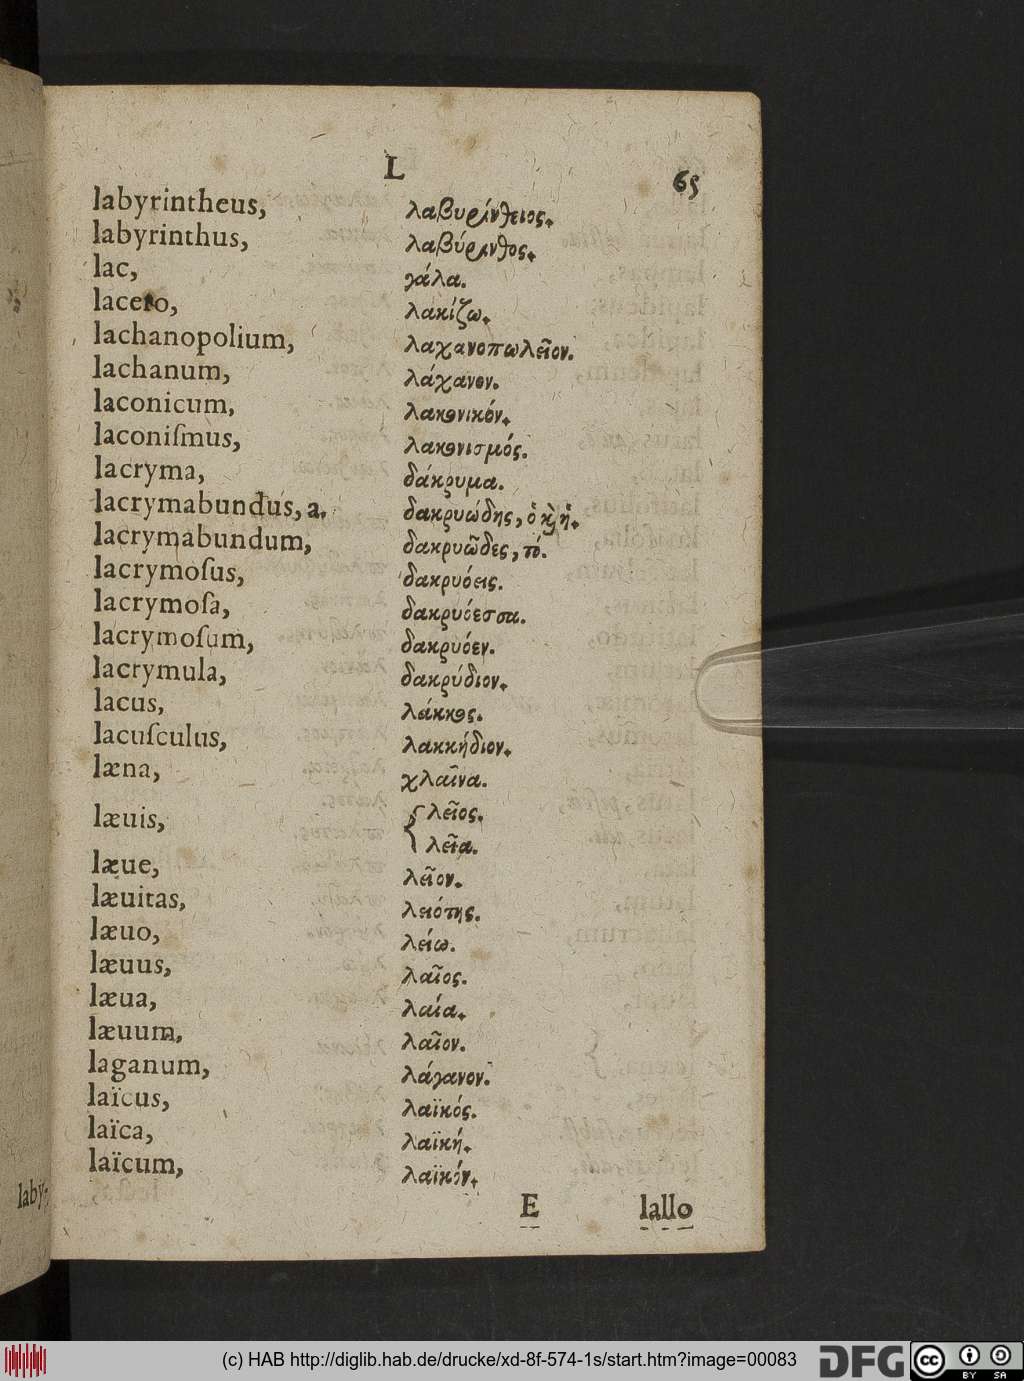 L
65
labyrintheus, λαβυρίνθειος.
labyrinthus, λαβύρινθος.
lac, γάλα.
lacero, λακίζω.
lachanopolium, λαχανοπωλεῖον.
lachanum, λάχανον.
laconicum, λακονικόν.
laconiſmus, λακονισμός.
lacryma, δάκρυμα.
lacrymabundus, a. δακρυώδης, ὁ κὴ ἡ.
lacrymabundum, δακρυῶδες, τό.
lacrymoſus, δακρυόεις.
lacrymoſa, δακρυόεσσα.
lacrymoſum, δακρυόεν.
lacrymula, δακρύδιον.
lacus, λάκκος.
lacuſculus, λακκήδιον.
læna, χλαῖνα.
læuis, { λεῖος.
λεῖα.
læue, λεῖον.
læuitas, λειότης.
læuo, λείω.
læuus, λαῖος.
læua, λαία.
læuum, λαῖον.
laganum, λάγανον.
laïcus, λαϊκός.
laïca, λαϊκή.
laïcum, λαϊκόν.
E lallo
laby-
(c) HAB http://diglib.hab.de/drucke/xd-8f-574-1s/start.htm?image=00083
DFG
cc BY SA